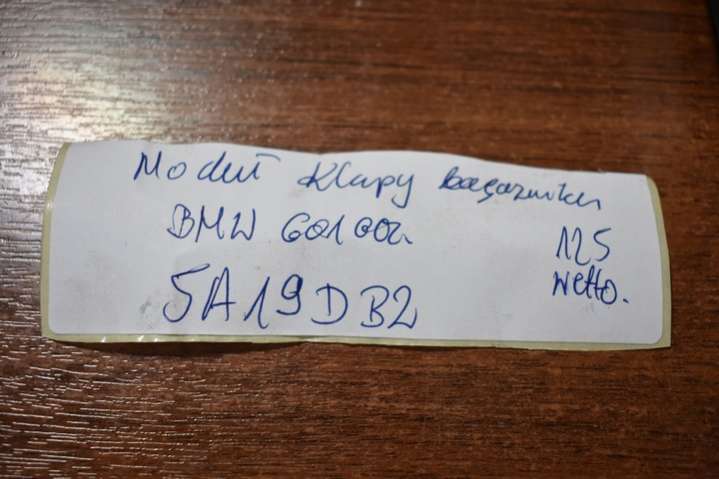 Moduł Klapy bagażnika
BMW G01
5A19DB2
125
netto.